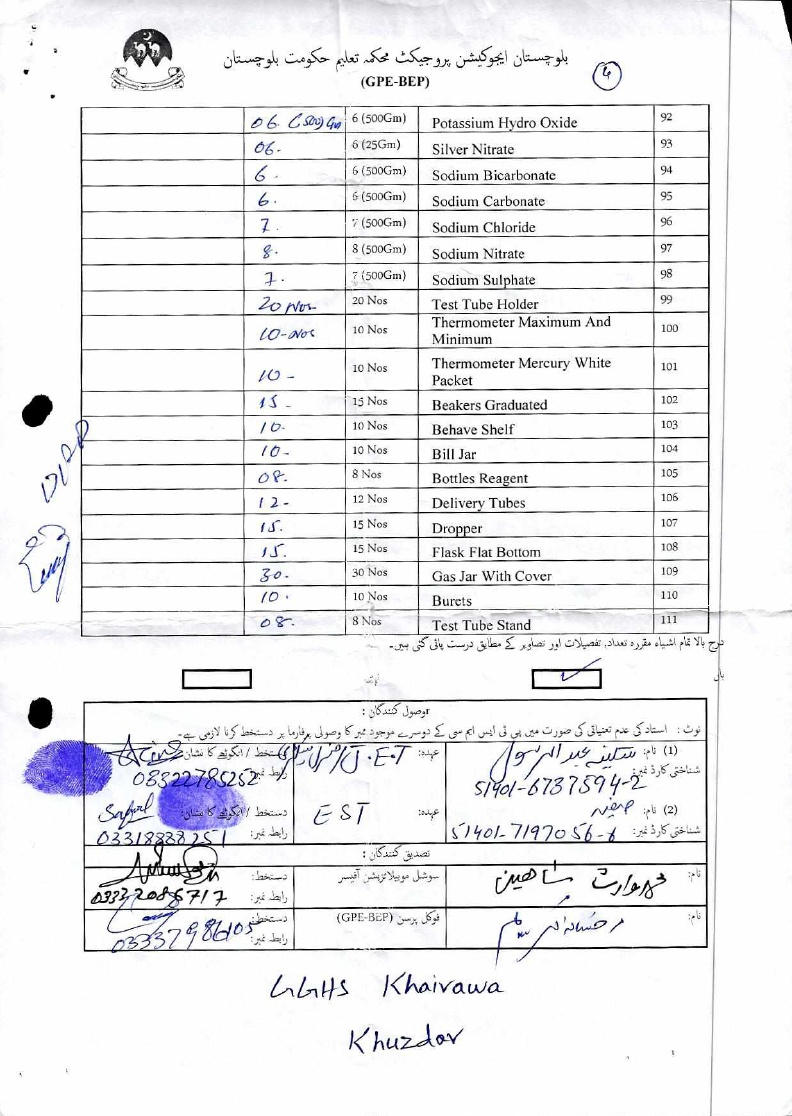 بلوچستان ایجوکیشن پروجیکٹ محکمہ تعلیم حکومت بلوچستان
(GPE-BEP)
4
06 (500) Gm 6 (500Gm) Potassium Hydro Oxide 92
06- 6 (25Gm) Silver Nitrate 93
6- 6 (500Gm) Sodium Bicarbonate 94
6. 6 (500Gm) Sodium Carbonate 95
7. 7 (500Gm) Sodium Chloride 96
8. 8 (500Gm) Sodium Nitrate 97
7. 7 (500Gm) Sodium Sulphate 98
20 Nos- 20 Nos Test Tube Holder 99
10-Nos 10 Nos Thermometer Maximum And Minimum 100
10- 10 Nos Thermometer Mercury White Packet 101
15- 15 Nos Beakers Graduated 102
10- 10 Nos Behave Shelf 103
10- 10 Nos Bill Jar 104
08. 8 Nos Bottles Reagent 105
12- 12 Nos Delivery Tubes 106
15. 15 Nos Dropper 107
15. 15 Nos Flask Flat Bottom 108
30. 30 Nos Gas Jar With Cover 109
10. 10 Nos Burets 110
08. 8 Nos Test Tube Stand 111
درج بالا تمام اشیاء مقررہ تعداد، تفصیلات اور تصاویر کے مطابق درست پائی گئی ہیں۔
ہاں
وصول کنندگان :
نوٹ : استاد کی عدم تعیناتی کی صورت میں پی ٹی ایس ایم سی کے دوسرے موجود ممبر کا وصولی پرفارما پر دستخط کرنا لازمی ہے۔
(1) نام: سکینہ عبدالرسول عہدہ: J.E.T دستخط / انگوٹھے کا نشان:
شناختی کارڈ نمبر: 51401-6737594-2 رابطہ نمبر: 08322785252
(2) نام: عہدہ: EST دستخط / انگوٹھے کا نشان:
شناختی کارڈ نمبر: رابطہ نمبر: 03318888251
تصدیق کنندگان :
نام: شاھین سوشل موبیلائزیشن آفیسر دستخط:
رابطہ نمبر:
نام: فوکل پرسن (GPE-BEP) دستخط:
رابطہ نمبر:
GGHS Khairawa
Khuzdar